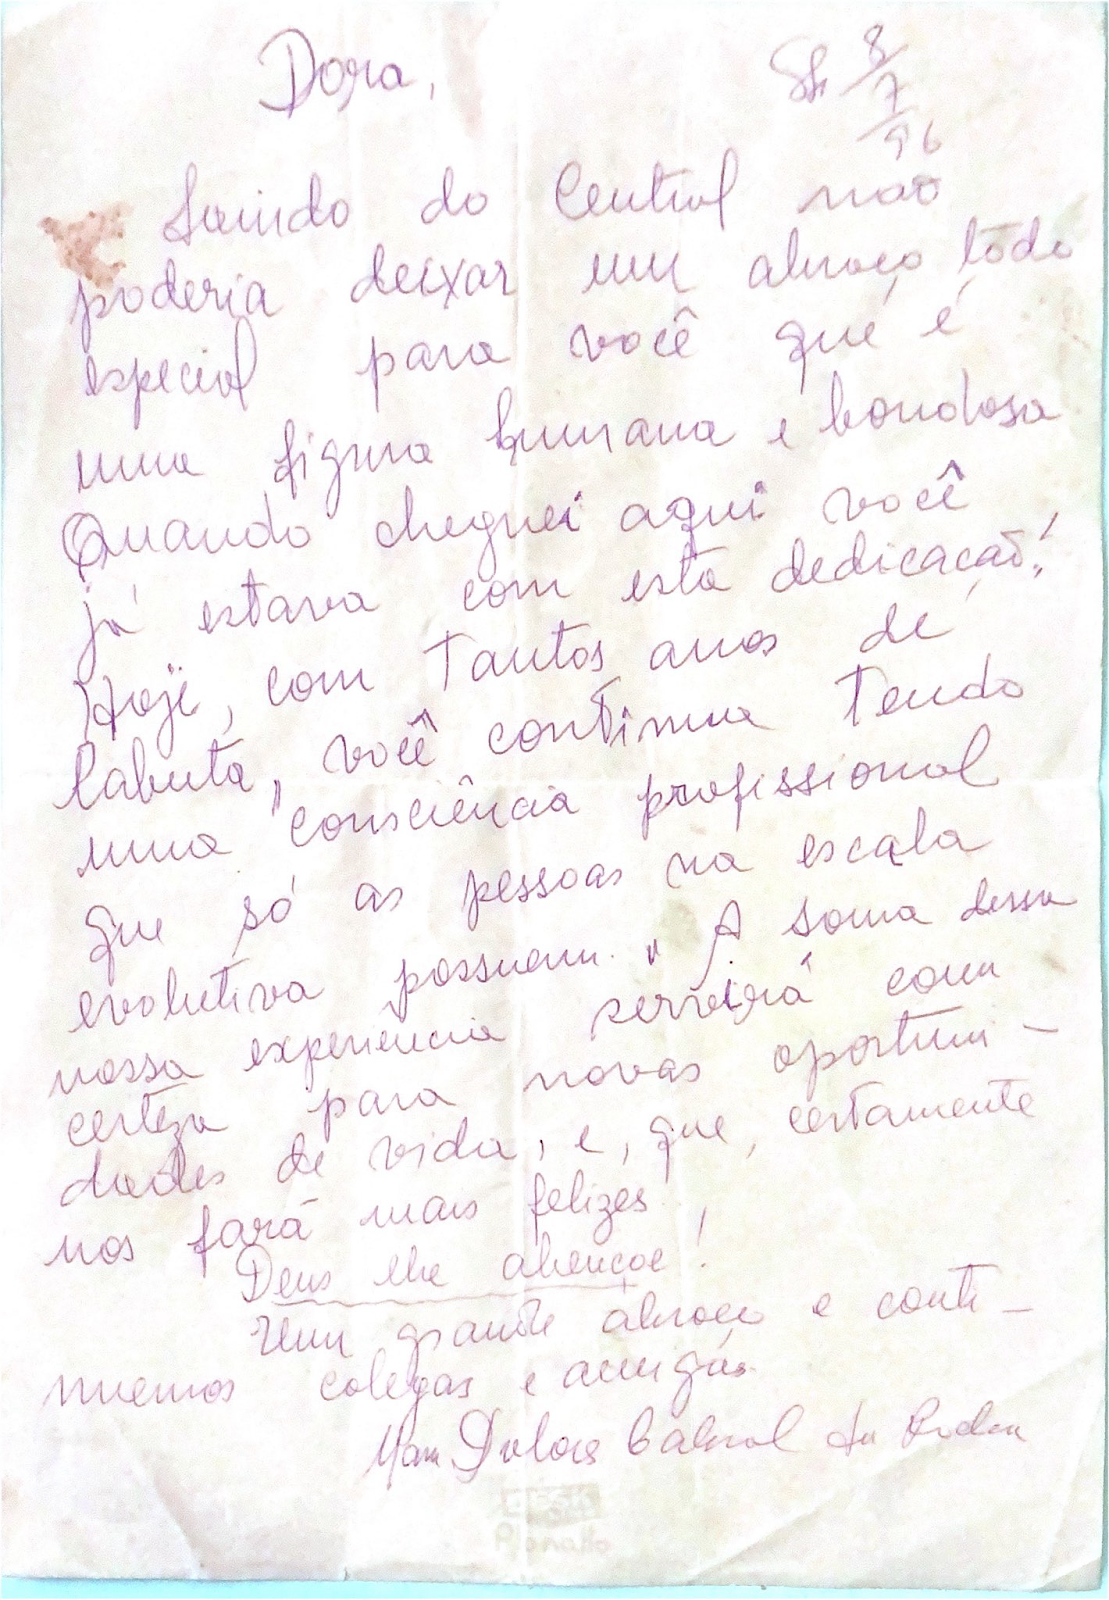 Dora,
8/7/96
Saindo do Central não
poderia deixar um abraço todo
especial para você que é
uma figura humana e bondosa
Quando cheguei aqui você
já estava com esta dedicação!
Hoje, com tantos anos de
labuta, você continua tendo
uma consciência profissional
que só as pessoas na escala
evolutiva possuem. A soma dessa
nossa experiência servirá com
certeza para novas oportuni-
dades de vida, e, que, certamente
nos fará mais felizes.
Deus lhe abençoe!
Um grande abraço e conti-
nuemos colegas e amigas.
Dulces Cabral da
DESK